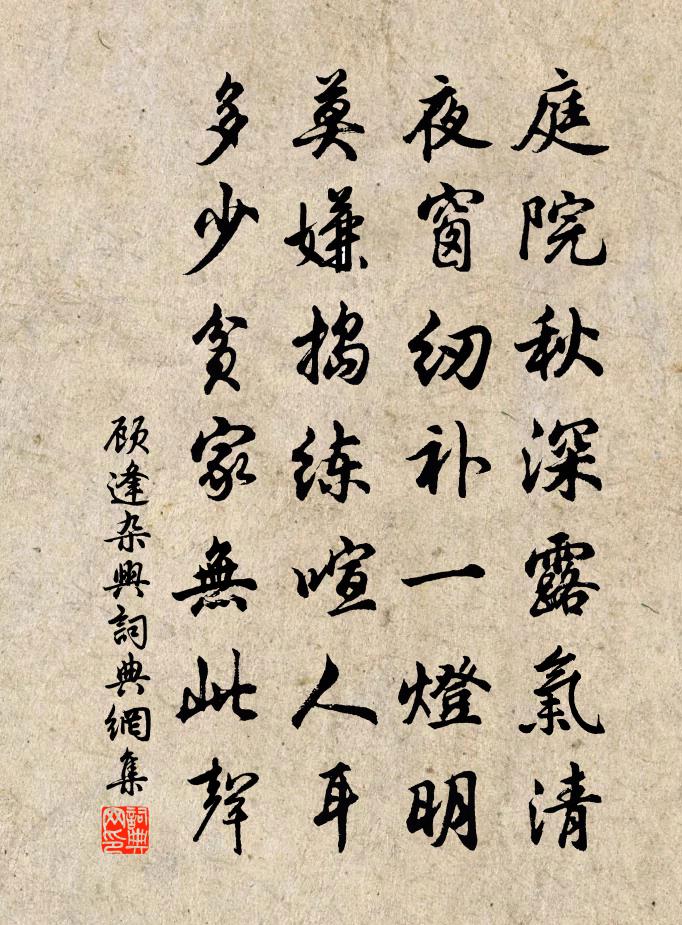 庭院秋深露氣清
夜窗紉补一燈明
莫嫌搗练喧人耳
多少贫家無此聲
顾逢杂興詞典網集
詞典网印